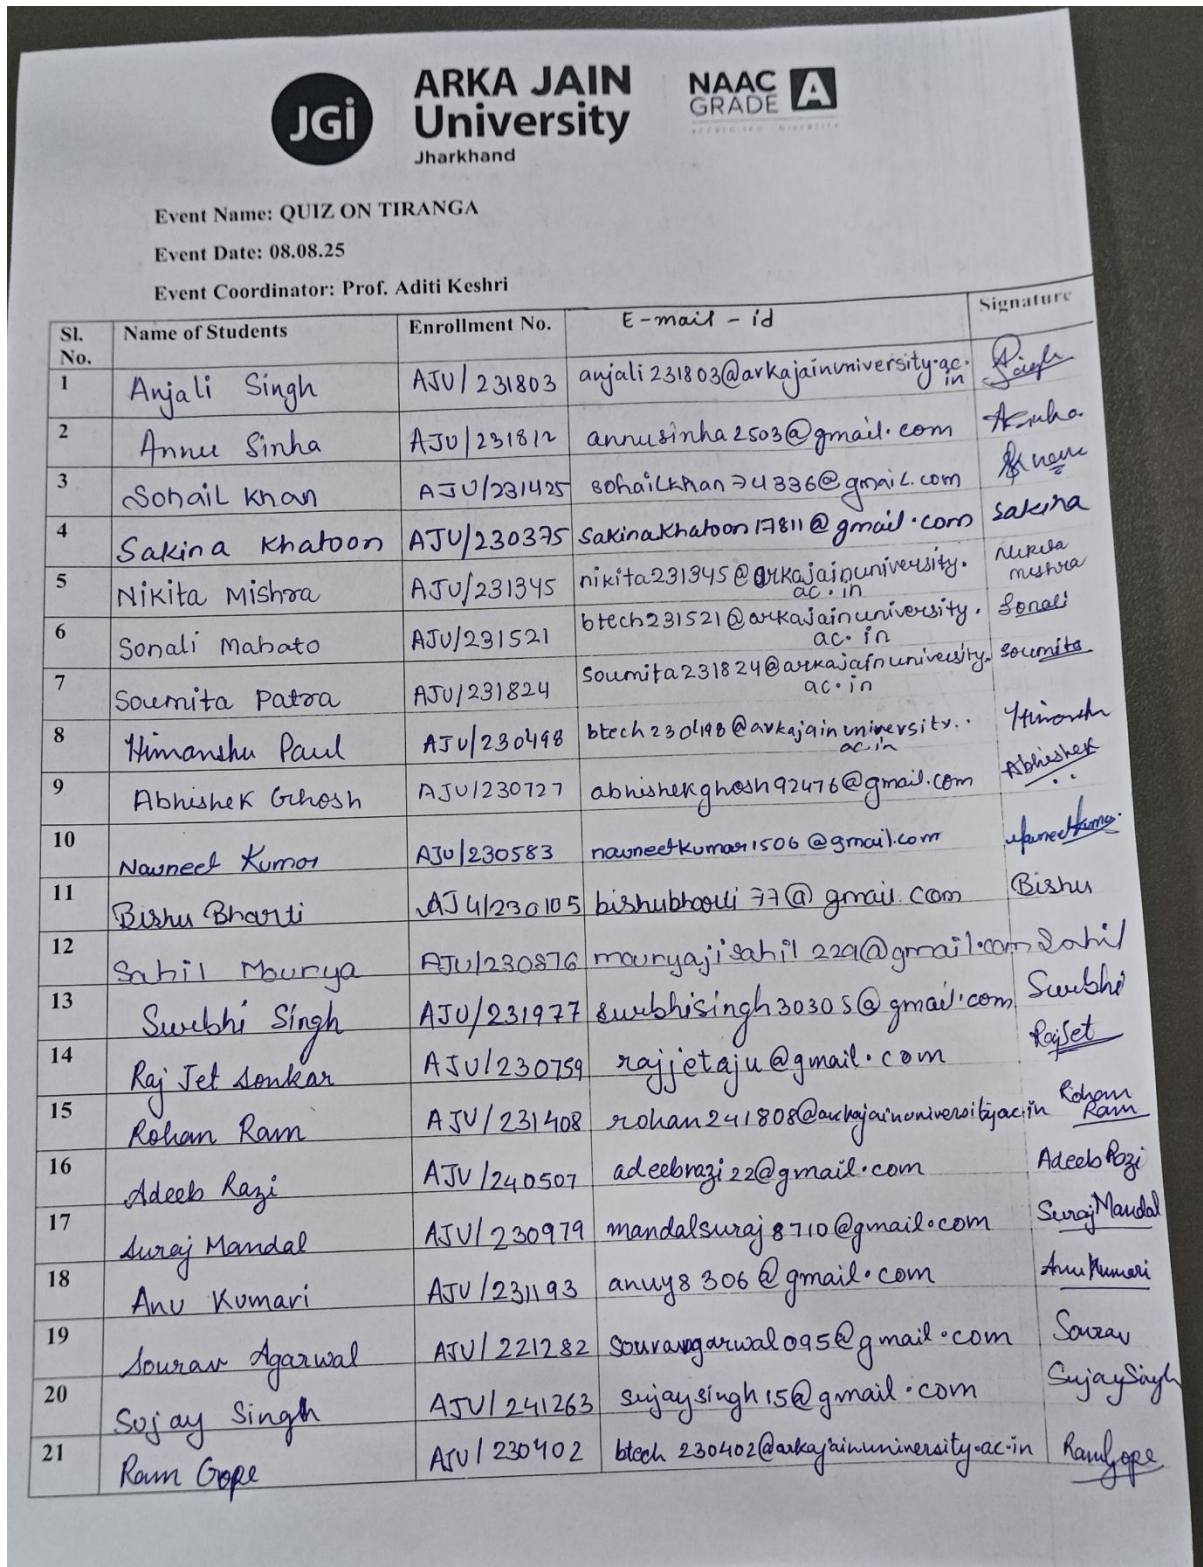 JGi
ARKA JAIN
University
Jharkhand
NAAC
GRADE A
Event Name: QUIZ ON TIRANGA
Event Date: 08.08.25
Event Coordinator: Prof. Aditi Keshri
Sl. No. Name of Students Enrollment No. E-mail - id Signature
1 Anjali Singh AJU/231803 anjali231803@arkajainuniversity.ac.in
2 Annu Sinha AJU/231812 annusinha2503@gmail.com
3 Sohail Khan AJU/231425 sohailkhan74336@gmail.com
4 Sakina Khatoon AJU/230375 Sakinakhatoon17811@gmail.com Sakina
5 Nikita Mishra AJU/231345 nikita231345@arkajainuniversity.ac.in Nikita Mishra
6 Sonali Mahato AJU/231521 btech231521@arkajainuniversity.ac.in Sonali
7 Soumita Patra AJU/231824 Soumita231824@arkajainuniversity.ac.in Soumita
8 Himanshu Paul AJU/230498 btech230498@arkajainuniversity..ac.in Himanshu
9 Abhishek Ghosh AJU/230727 abhishekghosh92476@gmail.com Abhishek
10 Navneet Kumar AJU/230583 navneetkumar1506@gmail.com Navneet Kumar
11 Bishu Bharti AJU/230105 bishubharti77@gmail.com Bishu
12 Sahil Mourya AJU/230876 mouryajisahil229@gmail.com Sahil
13 Surbhi Singh AJU/231977 surbhisingh30305@gmail.com Surbhi
14 Raj Jet Sonkar AJU/230759 rajjetaju@gmail.com RajJet
15 Rohan Ram AJU/231408 rohan241808@arkajainuniversity.ac.in Rohan Ram
16 Adeeb Razi AJU/240507 adeebrazi22@gmail.com Adeeb Razi
17 Suraj Mandal AJU/230979 mandalsuraj8710@gmail.com Suraj Mandal
18 Anu Kumari AJU/231193 anuy8306@gmail.com Anu Kumari
19 Sourav Agarwal AJU/221282 souravagarwal095@gmail.com Sourav
20 Sujay Singh AJU/241263 sujaysingh15@gmail.com Sujay Singh
21 Ram Gope AJU/230402 btech230402@arkajainuniversity.ac.in Ram Gope